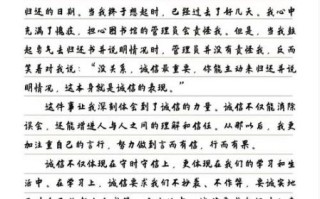 归还的日期。当我终于想起时，已经过去了好几天。我心中
充满了愧疚，担心图书馆的管理员会责怪我。但是，当我鼓
起勇气去归还书并说明情况时，管理员并没有责怪我，反而
笑着对我说：“没关系，诚信最重要，你能主动来归还并说
明情况，这本身就是诚信的表现。”
这件事让我深刻体会到了诚信的力量。诚信不仅能消除
误会，还能增进人与人之间的理解和信任。从那以后，我更
加注重自己的言行，努力做到言而有信，行而有果。
诚信不仅体现在守时守信上，更体现在我们的学习和生
活中。在学习上，诚信要求我们不抄袭、不作弊，要诚实地